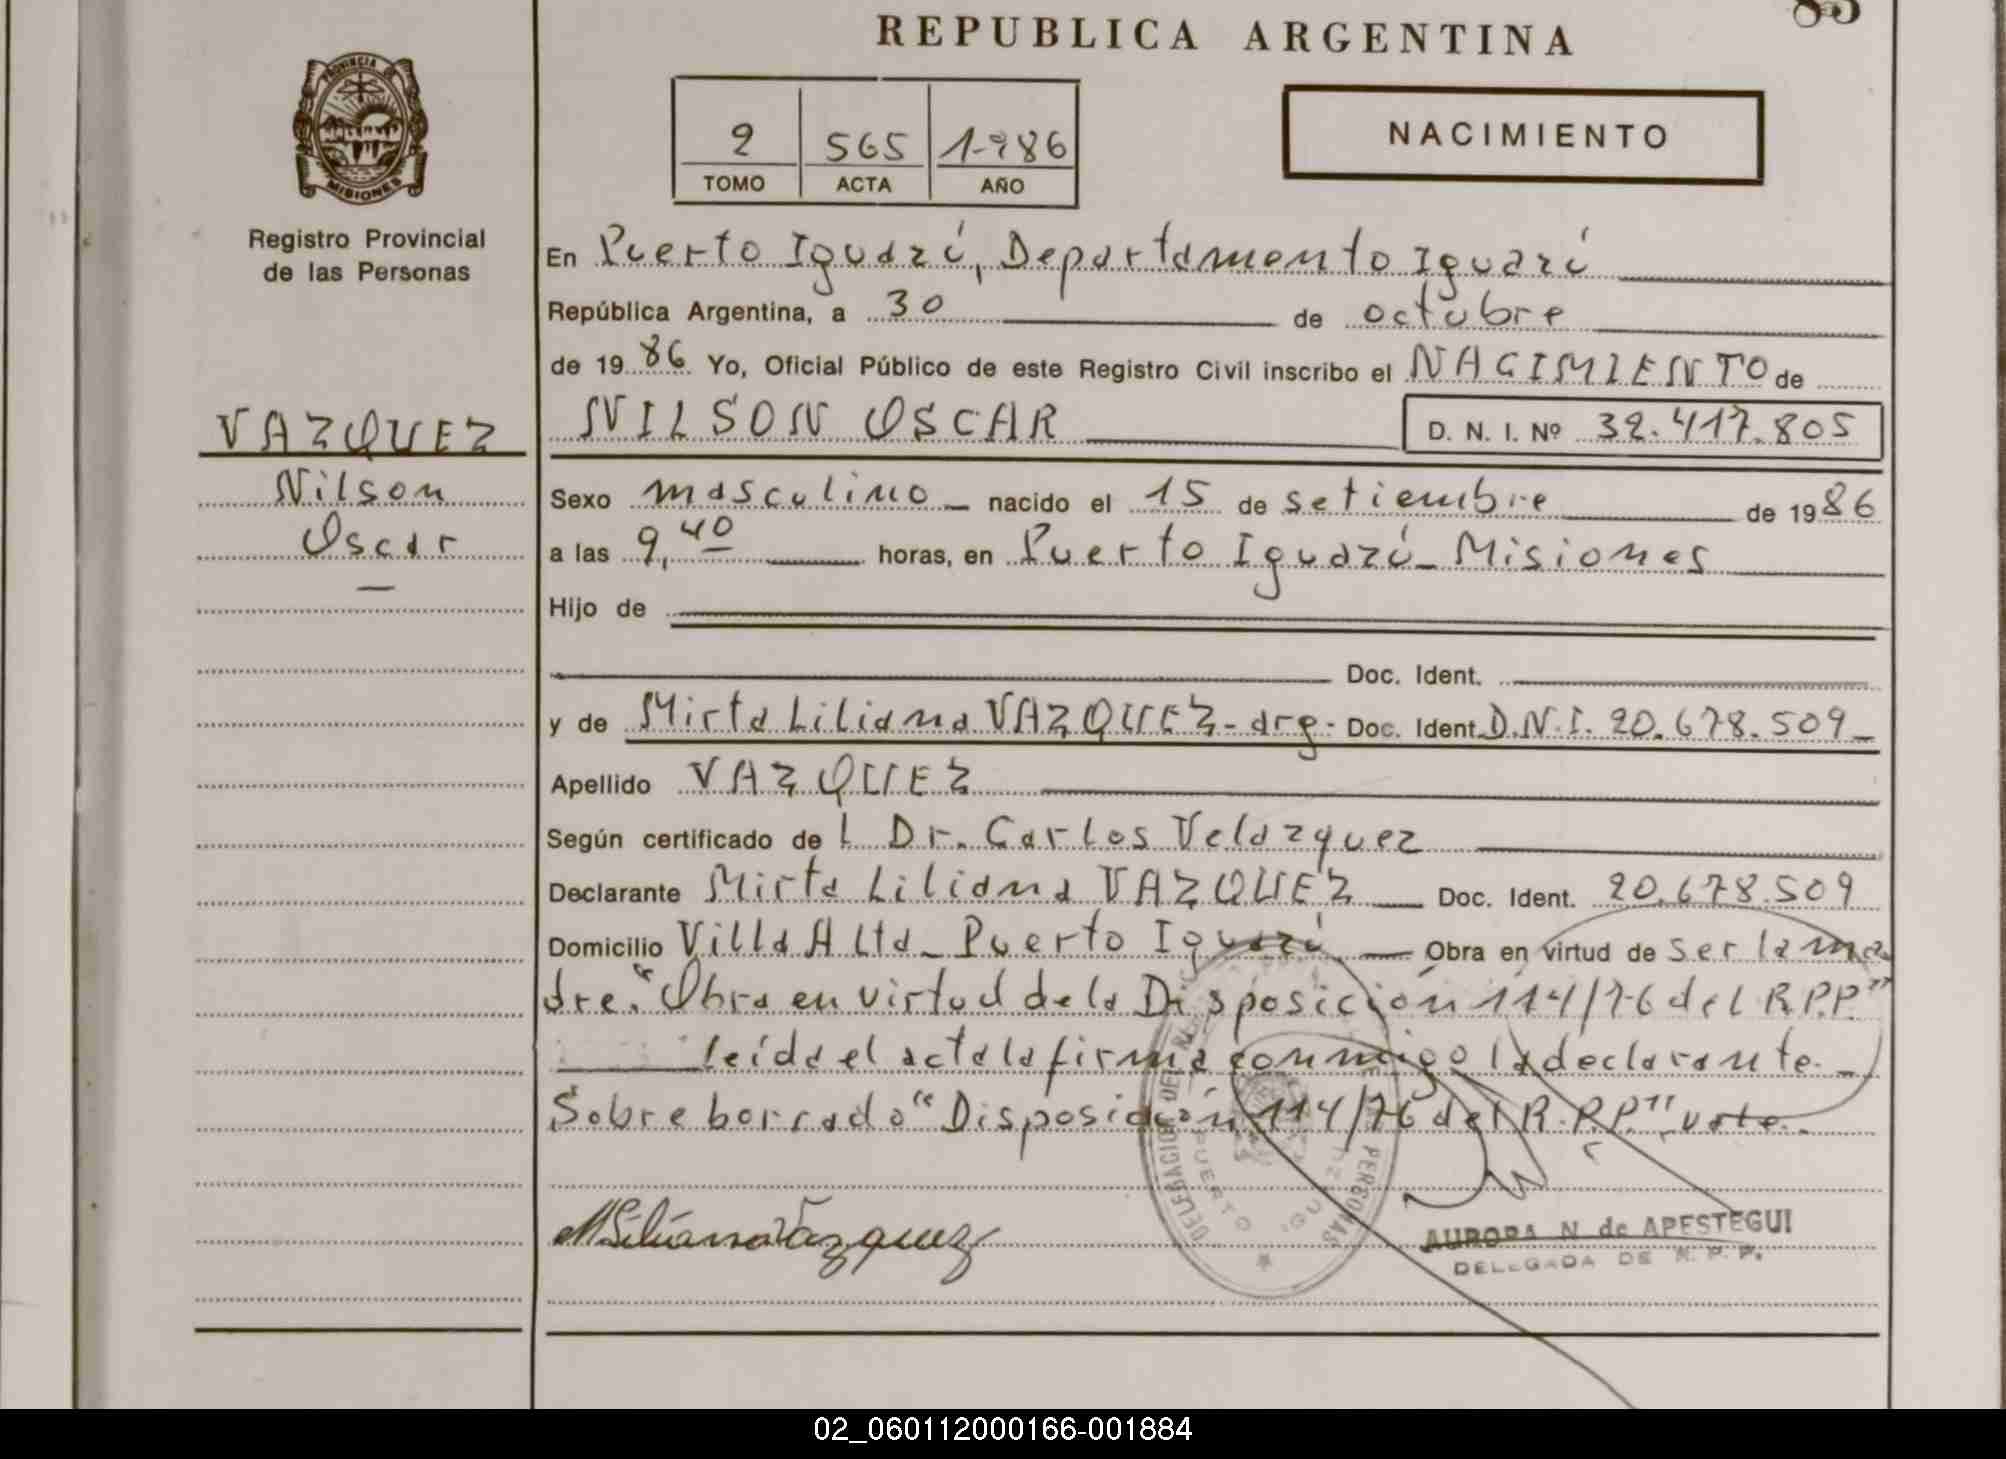 85
REPUBLICA ARGENTINA
PROVINCIA DE
MISIONES
Registro Provincial
de las Personas
2 565 1986
TOMO ACTA AÑO
NACIMIENTO
En Puerto Iguazú, Departamento Iguazú
República Argentina, a 30 de octubre
de 1986 Yo, Oficial Público de este Registro Civil inscribo el NACIMIENTO de
VAZQUEZ
NILSON OSCAR D. N. I. Nº 32.417.805
Nilson
Sexo masculino nacido el 15 de setiembre de 1986
Oscar
a las 9,40 horas, en Puerto Iguazú - Misiones
Hijo de
Doc. Ident.
y de Mirta Liliana VAZQUEZ - arg - Doc. Ident. D.N.I. 20.678.509
Apellido VAZQUEZ
Según certificado de l Dr. Carlos Velazquez
Declarante Mirta Liliana VAZQUEZ Doc. Ident. 20.678.509
Domicilio Villa Alta - Puerto Iguazú Obra en virtud de ser la ma
dre. "Obra en virtud de la Disposición 114/76 del R.P.P."
Leída el acta la firma conmigo la declarante.
Sobreborrado "Disposición 114/76 del R.P.P." vale.
DELEGACION DEL PERSONAS
PUERTO IGUAZU
M Liliana Vázquez
AURORA N. de APESTEGUI
DELEGADA DE R. P. P.
02_060112000166-001884